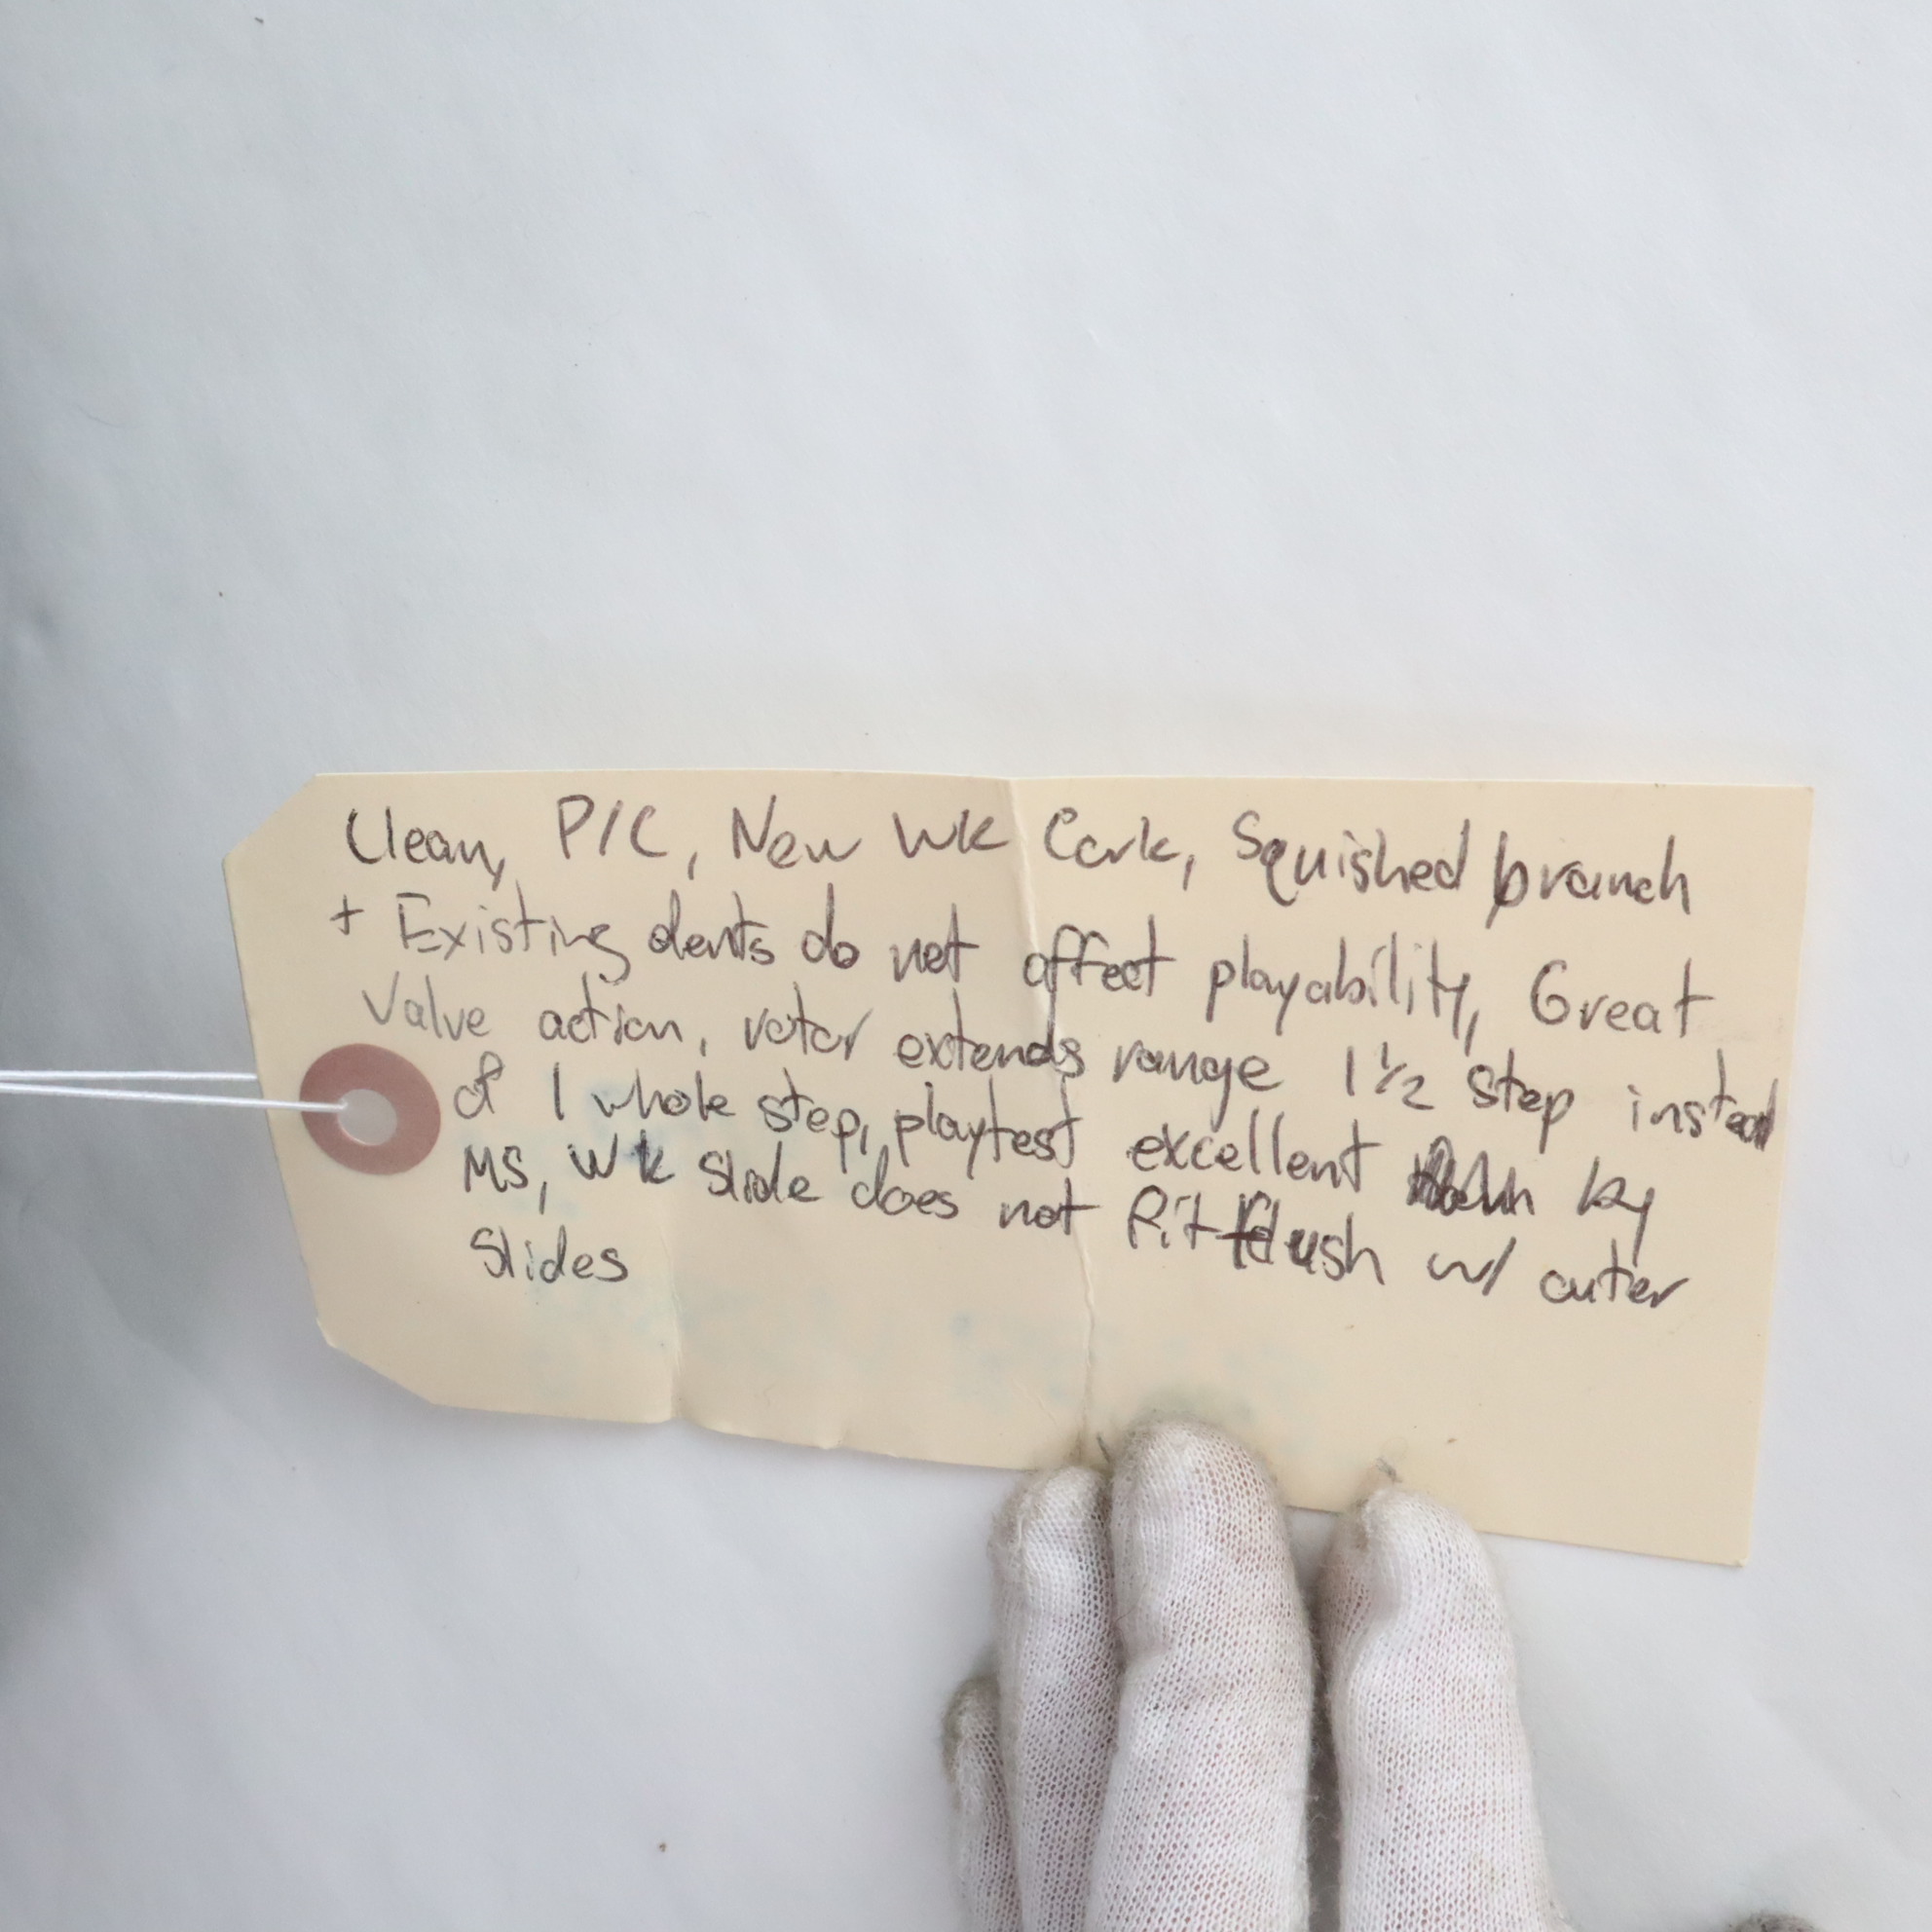 Clean, P/C, New WK Cork, Squished branch
+ Existing dents do not affect playability, Great
Valve action, rotor extends range 1 1/2 step instead
of 1 whole step, playtest excellent by
MS, WK slide does not fit flush w/ outer
Slides